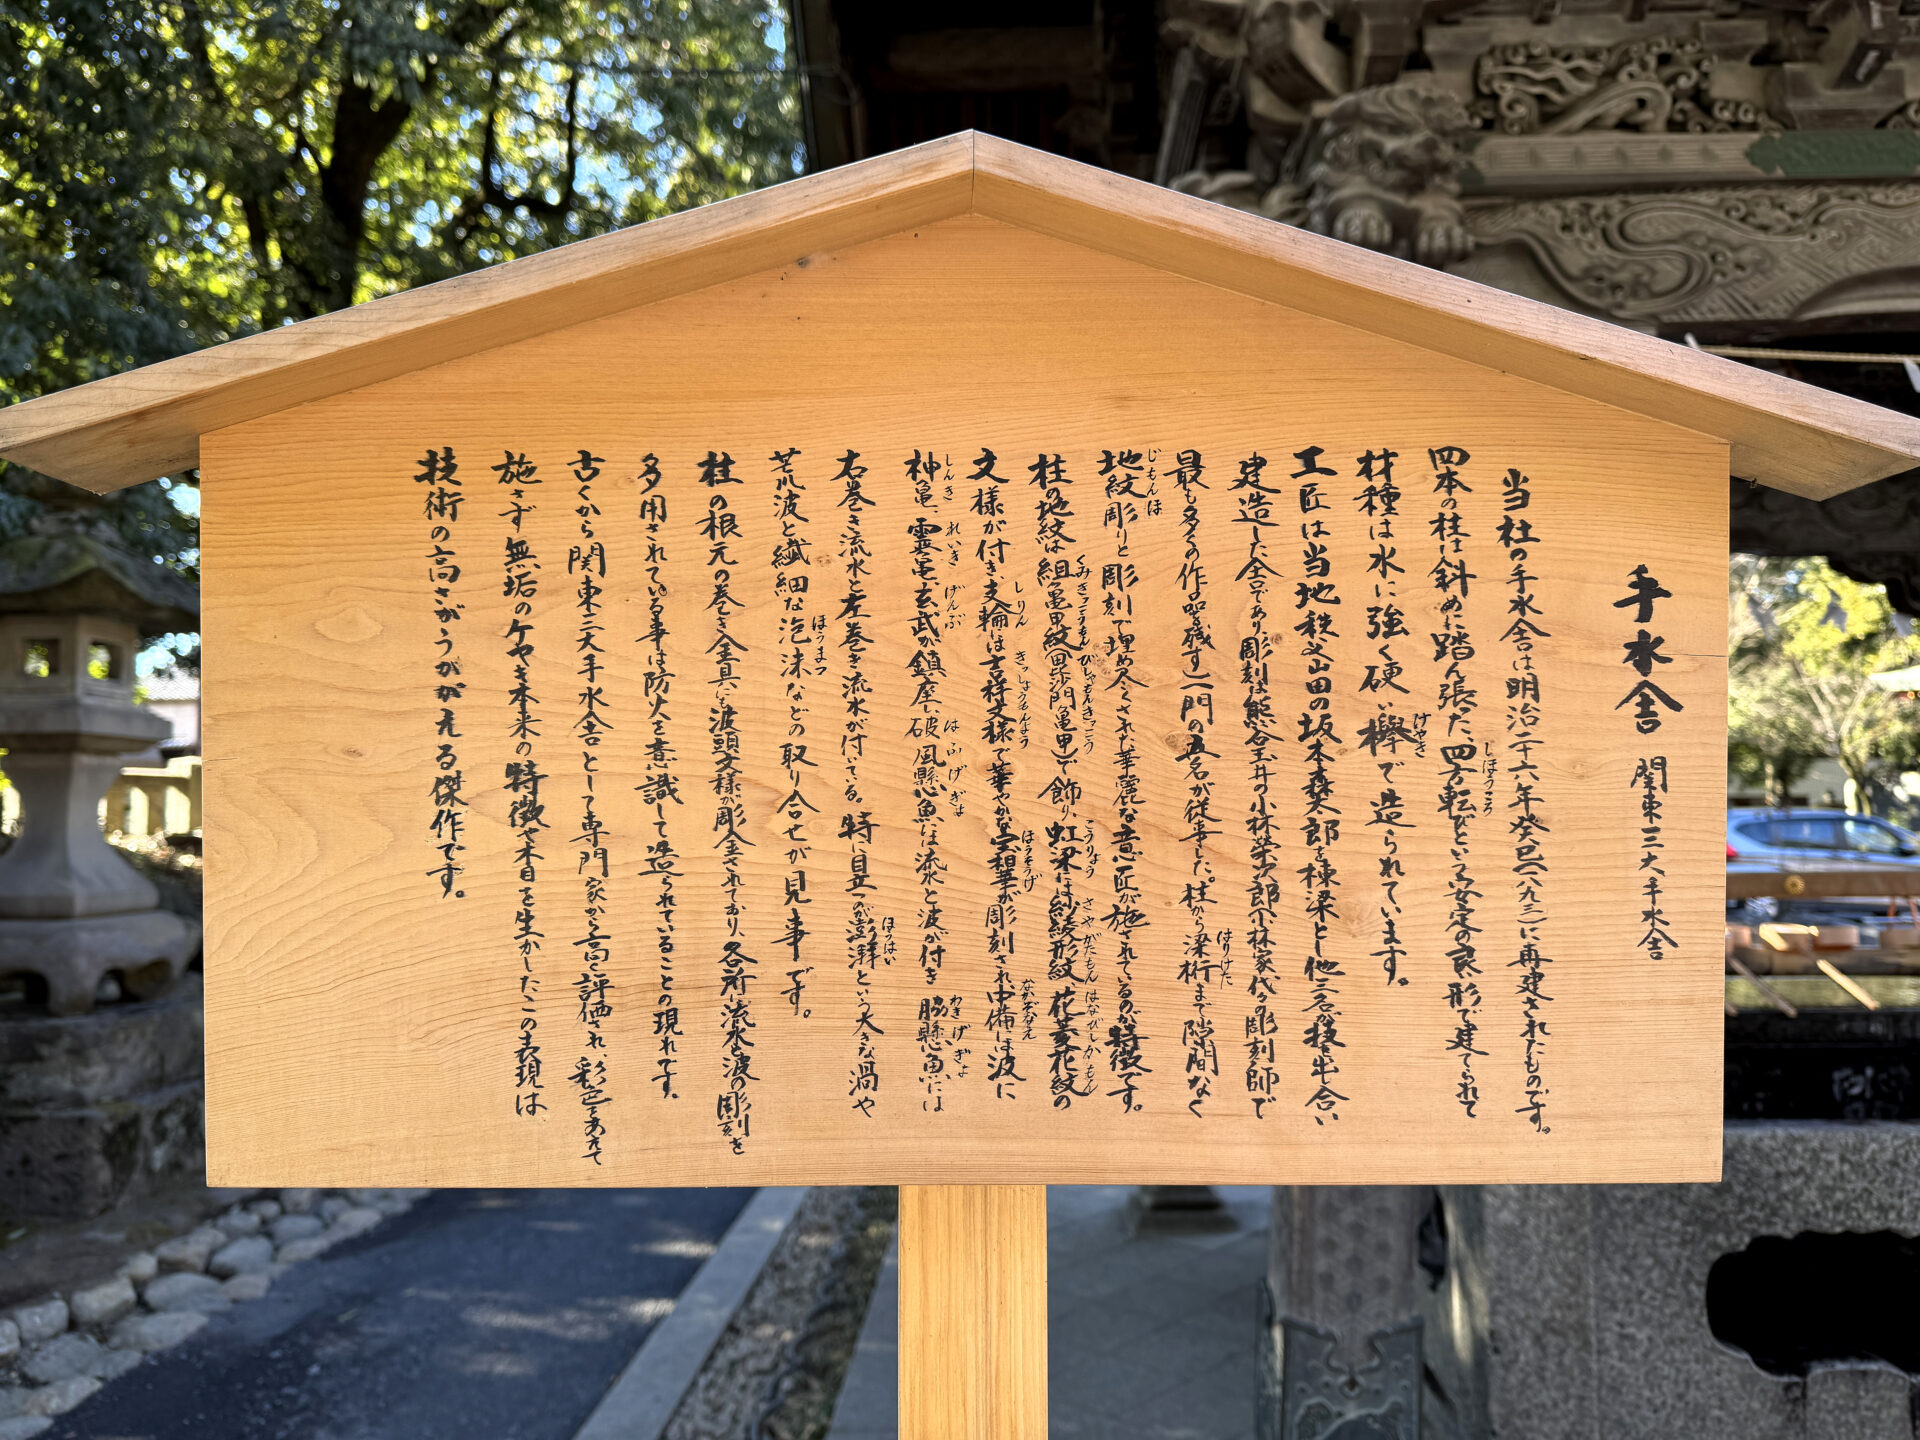 手水舎 関東三大手水舎
当社の手水舎は明治二十六年癸巳(一八九三)に再建されたものです。
四本の柱は斜めに踏ん張った、四方転びという安定の良い形で建てられて
材種は水に強く硬い欅で造られています。
工匠は当地秩父山田の坂本森太郎を棟梁とし他三名が技を出し合い
建造した舎であり、彫刻は熊谷玉井の小林栄次郎、小林家代々の彫刻師で
最も多くの作品を残す一門の五名が従事した。柱から梁桁まで隙間なく
地紋彫りと彫刻で埋め尽くされた華麗な意匠が施されているのが特徴です。
柱の地紋は組亀甲紋(毘沙門亀甲)で飾り、虹梁には紗綾形紋、花菱花紋の
文様が付き、支輪には吉祥文様で華やかな宝相華が彫刻され、中備には波に
神亀、霊亀、玄武が鎮座し破風懸魚には流水と波が付き脇懸魚には
右巻き流水と左巻き流水が付いている。特に目立つのが澎湃という大きな渦や
荒波と繊細な泡沫などの取り合せが見事です。
柱の根元の巻き金具にも波頭文様が彫金されており、各所に流水と波の彫刻を
多用されている事は防火を意識して造られていることの現れです。
古くから関東三大手水舎として専門家から高く評価され、彩色をあえて
施さず無垢のケヤキ本来の特徴や木目を生かしたこの表現は
技術の高さがうかがえる傑作です。